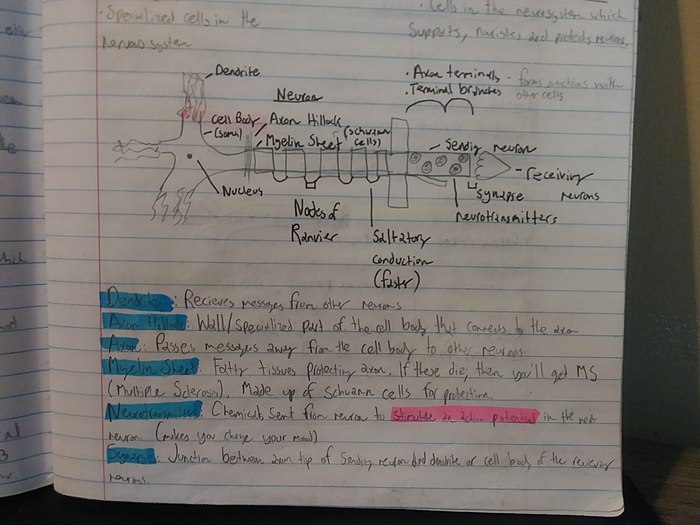 • Specialized cells in the
nervous system
• Cells in the neurosystem which
supports, nurishes and protects neurons.
• Dendrite
Neuron
• Axon terminals - forms junctions with
• Terminal branches other cells
Cell Body
- (soma)
Axon Hillock
Myelin Sheet (schwann
cells)
- Sending neuron
- receiving
neurons
Nucleus
Synapse
neurotransmitters
Nodes of
Ranvier
Saltatory
conduction
(faster)
Dendrite: Recieves messages from other neurons
Axon Hillock: Wall/specialized part of the cell body that connects to the axon
Axon: Passes messages away from the cell body to other neurons
Myelin Sheet: Fatty tissues protecting axon. If these die, then you'll get MS
(Multiple Sclerosis). Made up of Schwann cells for protection
Neurotransmitters: Chemicals sent from neuron to stimulate an action potential in the next
neuron (makes you change your mood)
Synapse: Junction between axon tip of sending neuron and dendrite or cell body of the receiving
neurons.